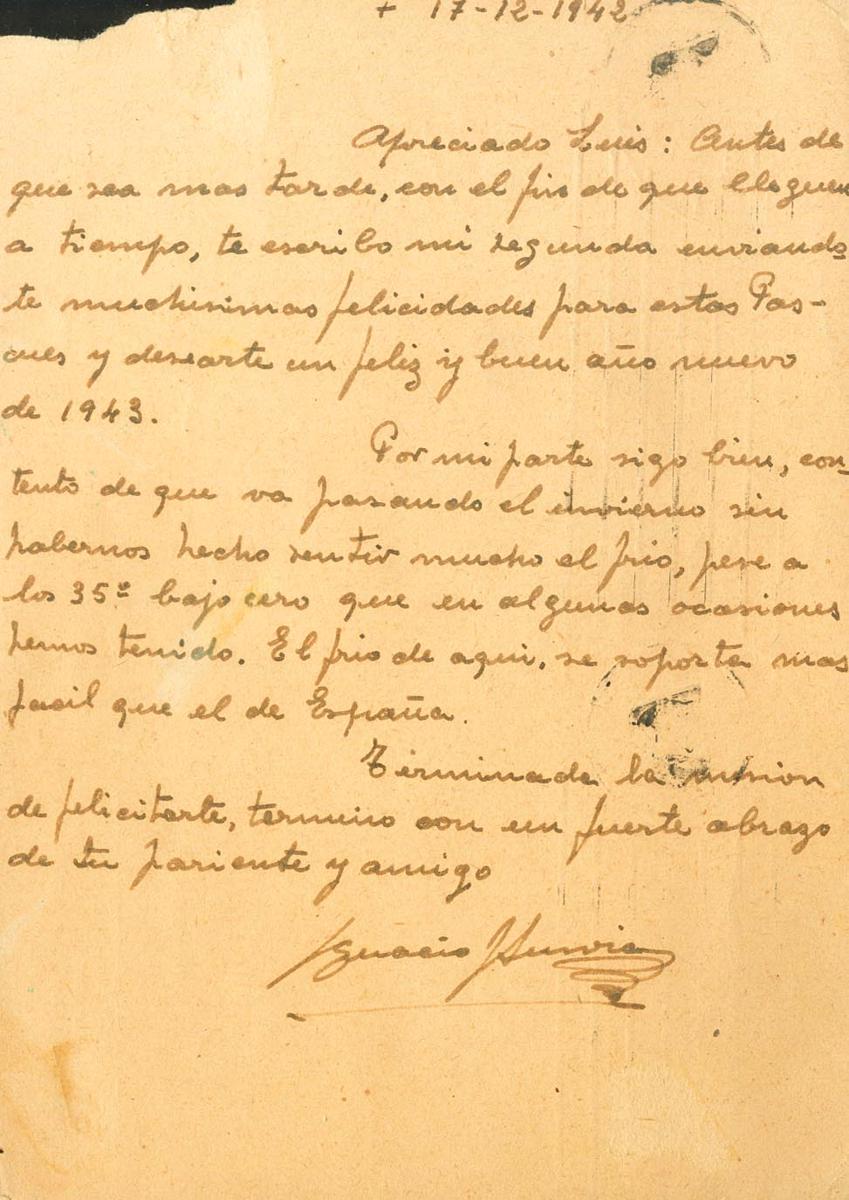 + 17-12-1942
Apreciado Luis: Antes de
que sea mas tarde, con el fin de que lleguen
a tiempo, te escribo mi segunda enviando
te muchisimas felicidades para estas Pas-
cues y desearte un feliz y buen año nuevo
de 1943.
Por mi parte sigo bien, con-
tento de que va pasando el invierno sin
habernos hecho sentir mucho el frio, pese a
los 35º bajo cero que en algunas ocasiones
hemos tenido. El frio de aqui, se soporta mas
facil que el de España.
Terminada la mision
de felicitarte, termino con un fuerte abrazo
de tu pariente y amigo
Ignacio